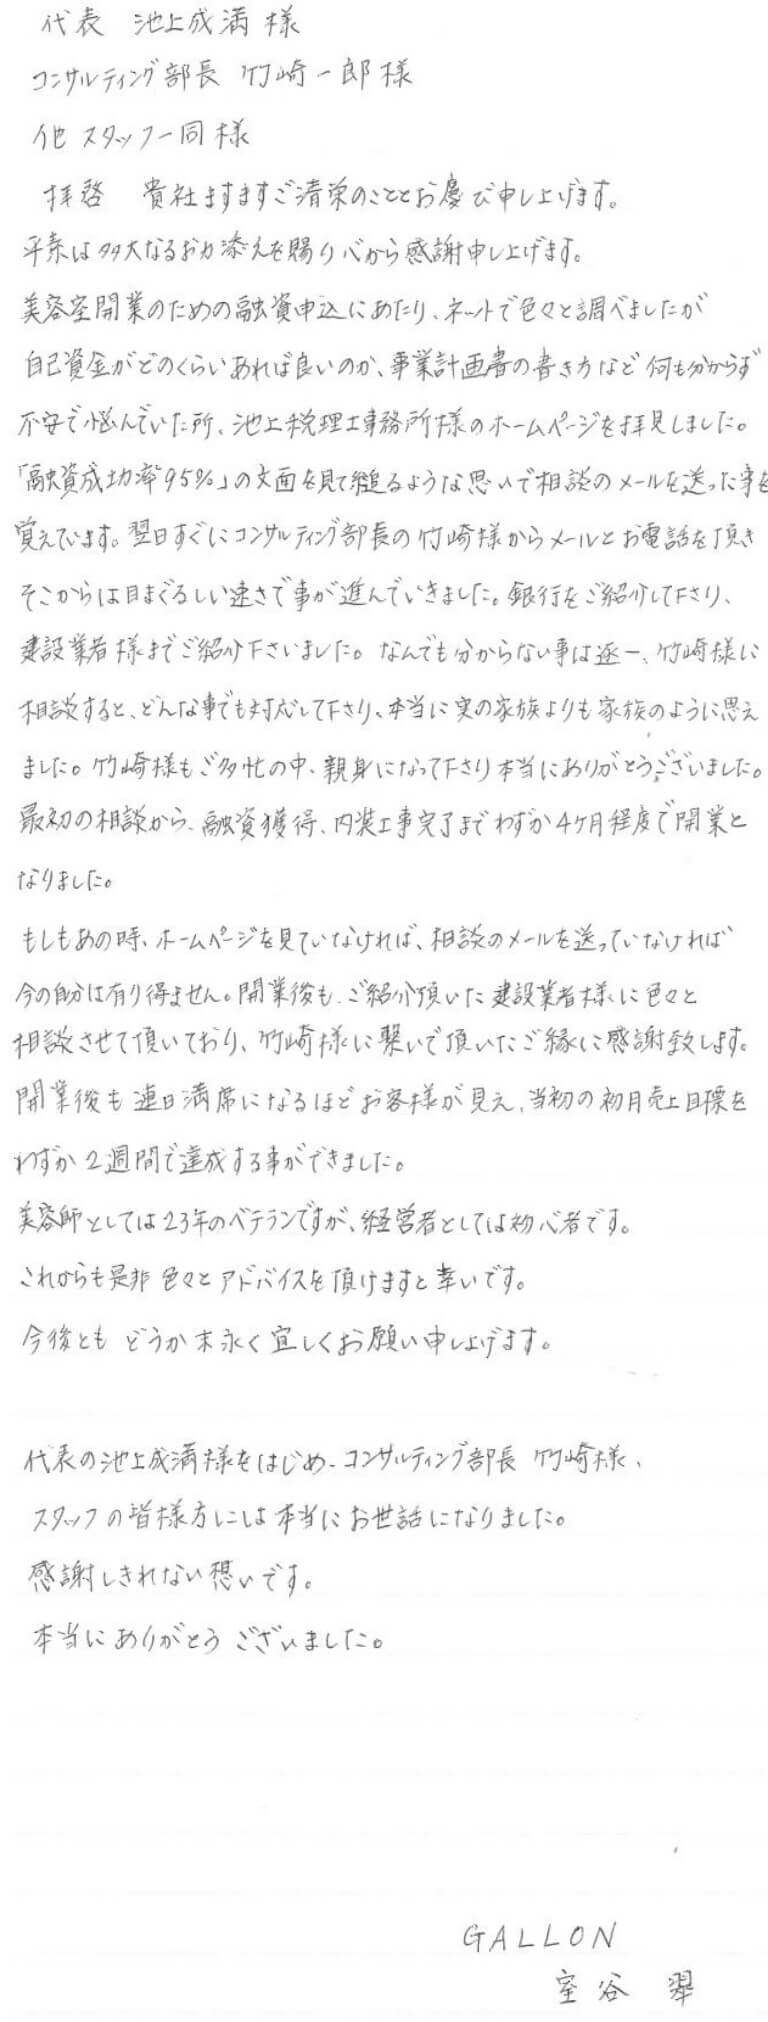 代表 池上成満様
コンサルティング部長 竹崎一郎様
他 スタッフ一同様
拝啓 貴社ますますご清栄のこととお慶び申し上げます。
平素は多大なるお力添えを賜り心から感謝申し上げます。
美容室開業のための融資申込にあたり、ネットで色々と調べましたが
自己資金がどのくらいあれば良いのか、事業計画書の書き方など何も分からず
不安で悩んでいた所、池上税理士事務所様のホームページを拝見しました。
「融資成功率95%」の文面を見て縋るような思いで相談のメールを送った事を
覚えています。翌日すぐにコンサルティング部長の竹崎様からメールとお電話を頂き
そこからは目まぐるしい速さで事が進んでいきました。銀行をご紹介して下さり、
建設業者様までご紹介下さいました。なんでも分からない事は逐一、竹崎様に
相談すると、どんな事でも対応して下さり、本当に実の家族よりも家族のように思え
ました。竹崎様もご多忙の中、親身になって下さり本当にありがとうございました。
最初の相談から、融資獲得、内装工事完了までわずか4ヶ月程度で開業と
なりました。
もしもあの時、ホームページを見ていなければ、相談のメールを送っていなければ
今の自分は有り得ません。開業後も、ご紹介頂いた建設業者様に色々と
相談させて頂いており、竹崎様に繋いで頂いたご縁に感謝致します。
開業後も連日満席になるほどお客様が見え、当初の初月売上目標を
わずか2週間で達成する事ができました。
美容師としては23年のベテランですが、経営者としては初心者です。
これからも是非色々とアドバイスを頂けますと幸いです。
今後ともどうか末永く宜しくお願い申し上げます。
代表の池上成満様をはじめ、コンサルティング部長 竹崎様、
スタッフの皆様方には本当にお世話になりました。
感謝しきれない想いです。
本当にありがとうございました。
GALLON
室谷 翠